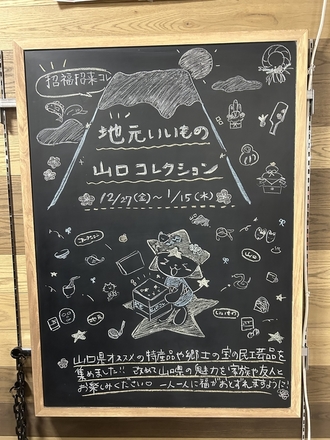 招福招来コレ
地元いいもの
山口コレクション
12/27(金)～1/15(水)
コレクション
山口
地元
いいもの
山口県オススメの特産品や郷土の宝の民工芸品を
集めました!! 改めて山口県の魅力を家族や友人と
お楽しみください♡ 一人一人に福がおとずれますように!